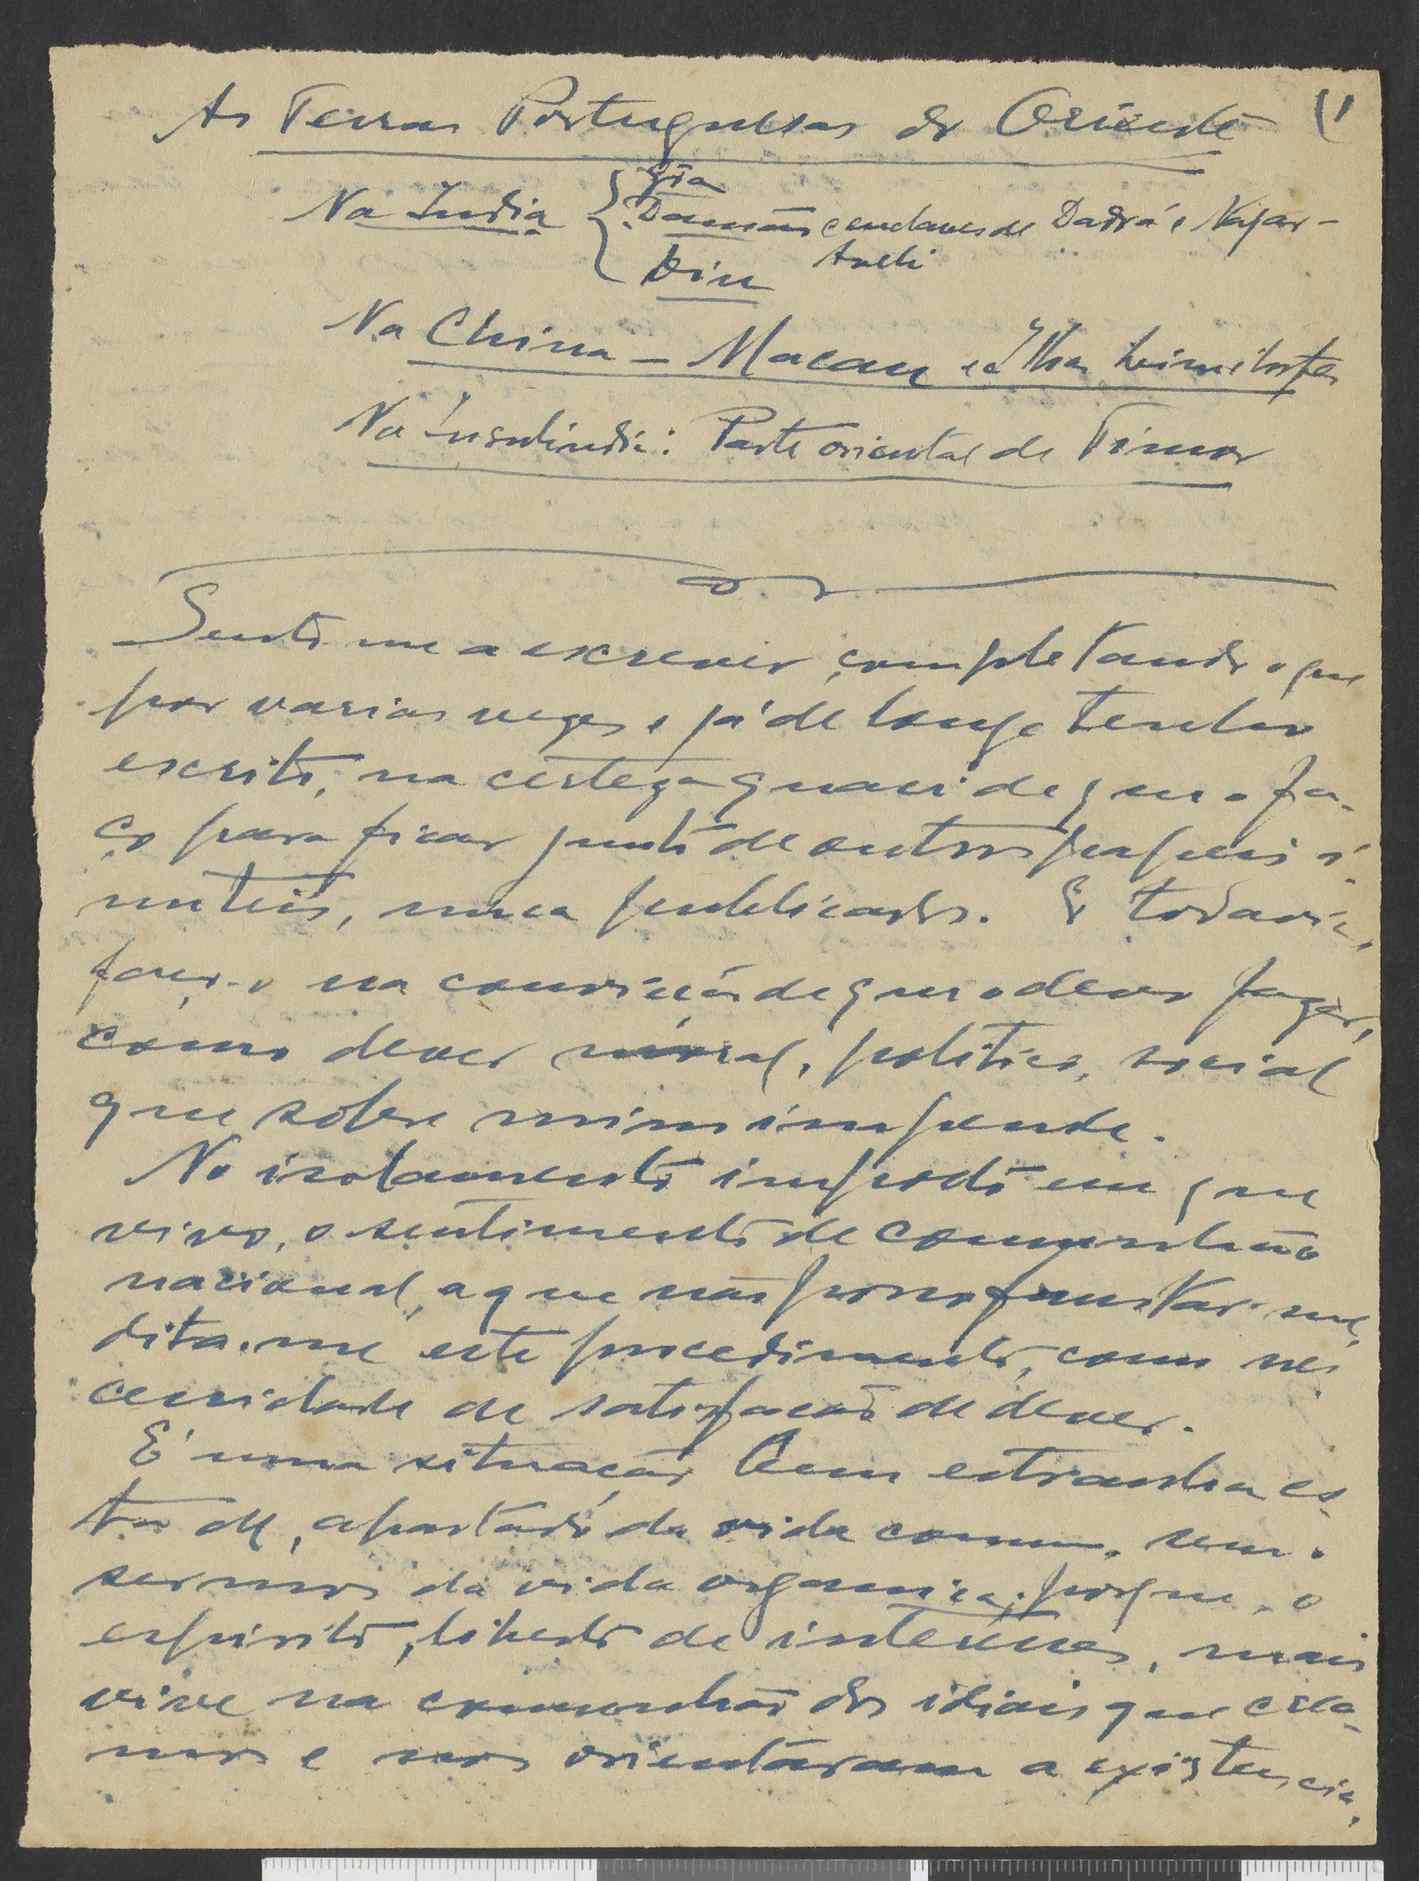 As Terras Portuguesas do Oriente (1
Na India { Gôa
Damão e enclaves de Dadrá e Nagar-
Aveli
Diu
Na China - Macau e a Ilha
Na Insulindia: Parte oriental de Timor
Sento me a escrever, completando o que
por varias vezes e já de longe tenho
escrito, na certeza quasi de que o fa-
ço para ficar junto de outros papeis i-
nuteis, nunca publicados. E todavia,
faço-o na convicção de que o devo fazer,
como dever moral, politico, social
que sobre mim impende.
No isolamento imposto em que
vivo, o sentimento de comunhão
nacional, a que não posso furtar-me,
dita-me este procedimento, como ne-
cessidade de satisfação de dever.
É uma situação bem estranha es-
ta de, apartado da vida comum, sem o
sermos da vida organica; porque, o
espirito, liberto de interesses, mais
vive na comunhão dos ideais que crea-
mos e nos orientáram a existencia.